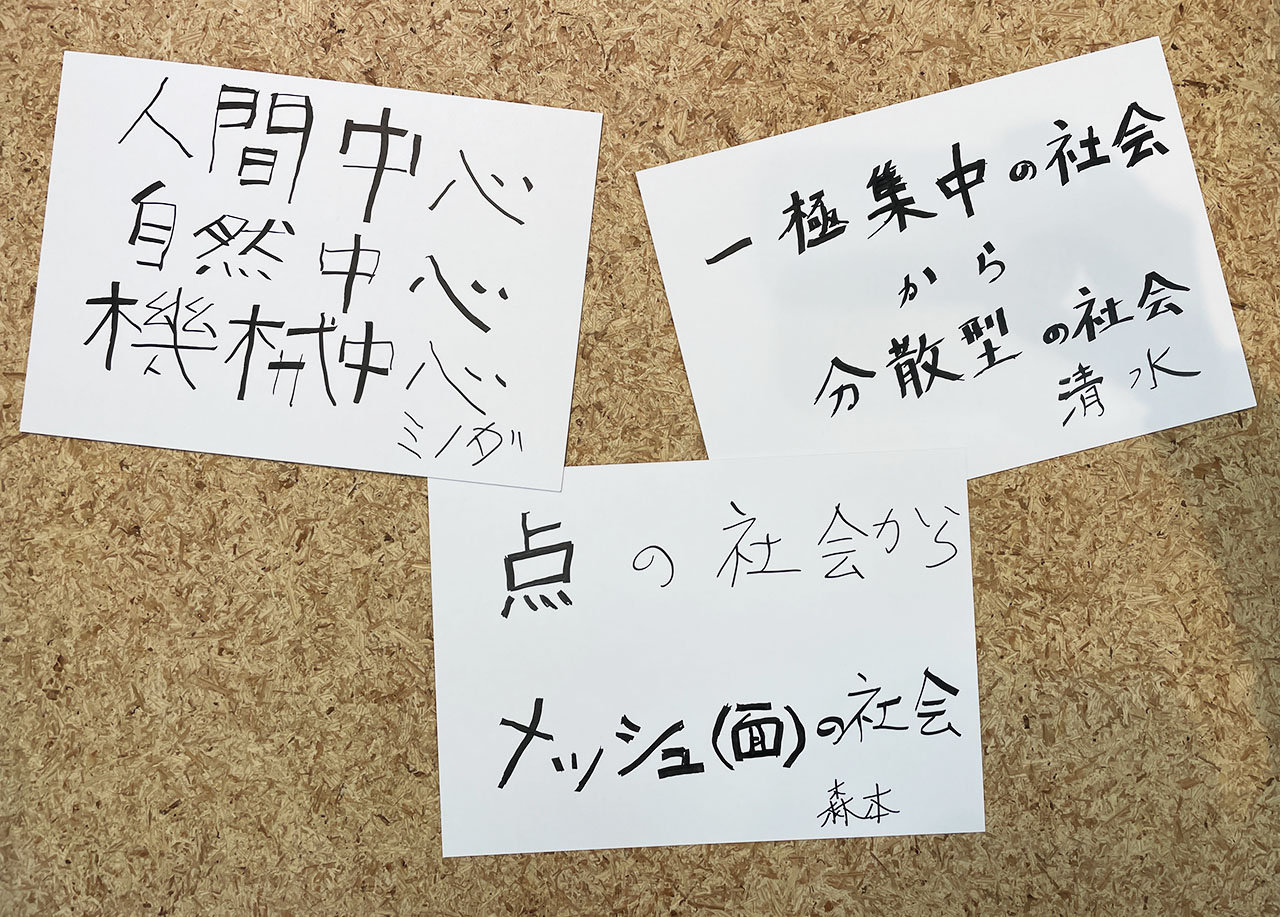 人間中心
自然中心
機械中心
ミノガ
一極集中の社会
から
分散型の社会
清水
点の社会から
メッシュ(面)の社会
森本